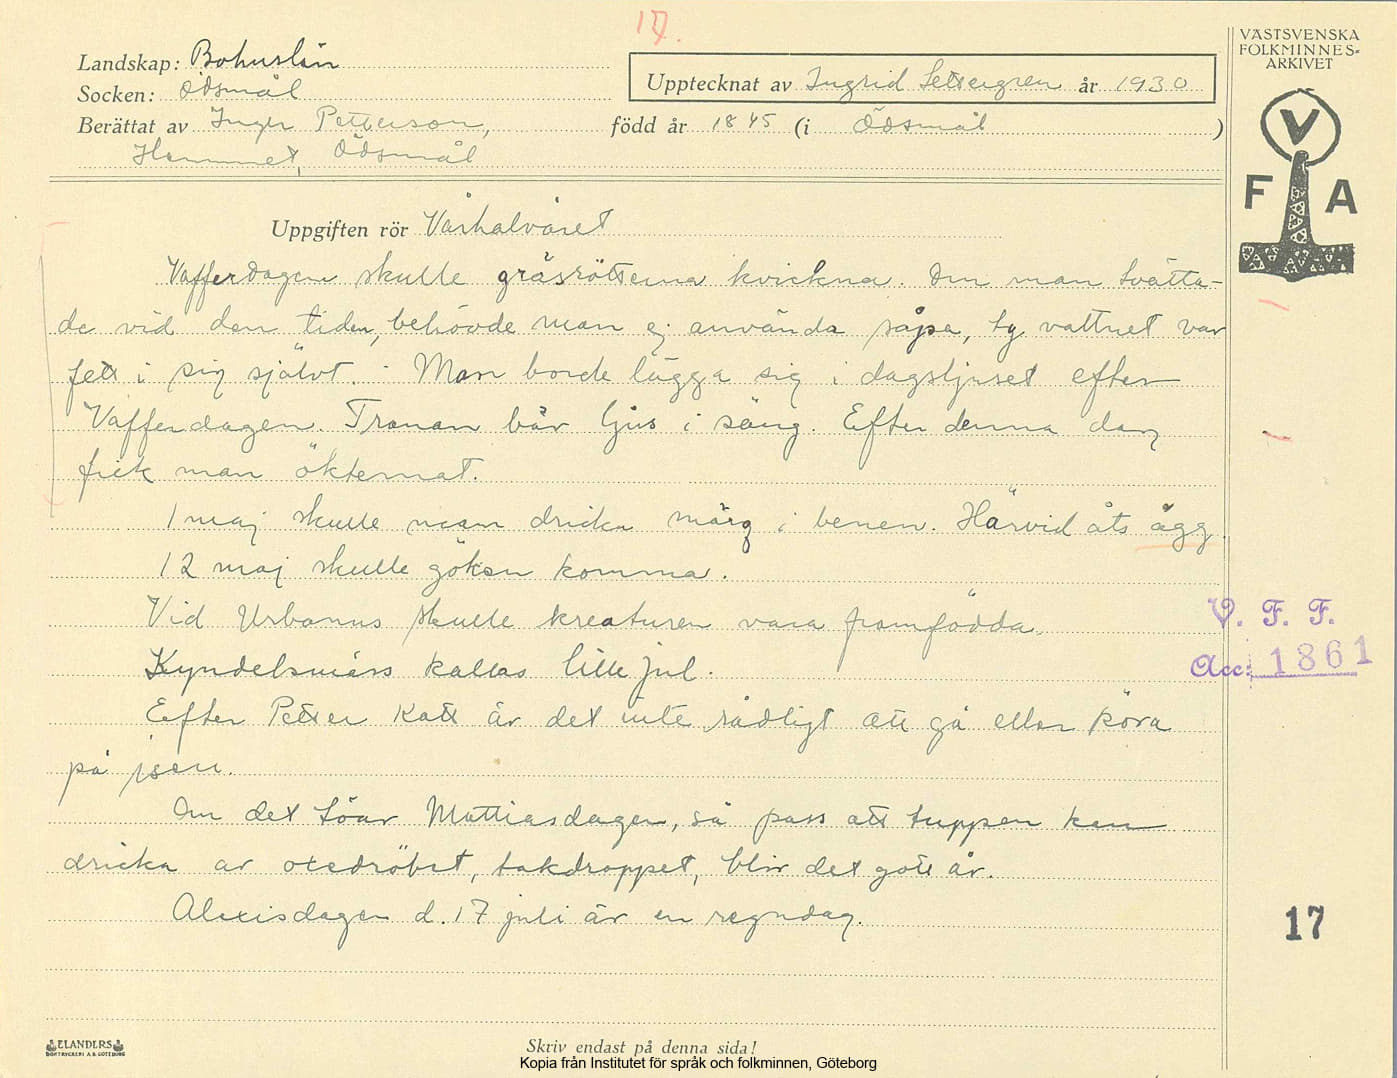 17.
VÄSTSVENSKA
FOLKMINNES-
ARKIVET
Landskap: Bohuslän
Upptecknat av Ingrid Settergren år 1930
Socken: Ödsmål
Berättat av Inger Petterson, född år 1845 (i Ödsmål)
Hammet, Ödsmål
V
F A
Uppgiften rör Vårhalvåret
Vafferdagen skulle gräsrötterna kvickna. Om man tvätta-
de vid den tiden, behövde man ej använda såpa, ty vattnet var
fett i sig självt. - Man borde lägga sig i dagsljuset efter
Vafferdagen. Tranan bär ljus i säng. Efter denna dag
fick man öktemat.
1 maj skulle man dricka märg i benen. Härvid åts ägg.
12 maj skulle göken komma.
Vid Urbanus skulle kreaturen vara framfödda.
V. F. F.
Kyndelsmäss kallas lille jul.
Acc: 1861
Efter Petter Katt är det inte rådligt att gå eller köra
på isen.
Om det töar Mattiasdagen, så pass att tuppen kan
dricka av oxedröbet, takdroppet, blir det gott år.
Alexisdagen d. 17 juli är en regndag.
17
ELANDERS
BOKTRYCKERI A.B. GÖTEBORG
Skriv endast på denna sida!
Kopia från Institutet för språk och folkminnen, Göteborg